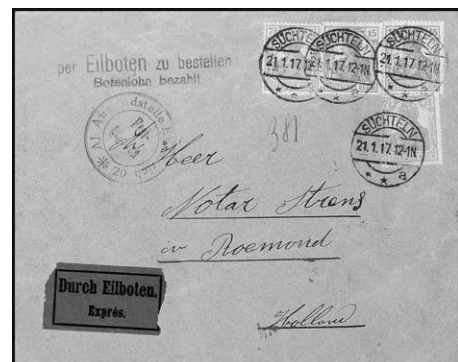 per Eilboten zu bestellen
Botenlohn bezahlt
SÜCHTELN
21.1.17.12-1N
a
SÜCHTELN
21.1.17.12-1N
a
SÜCHTELN
21.1.17.12-1N
a
15
15
381
Heer
Notar Strens
in Roemond
Holland
Durch Eilboten.
Exprès.